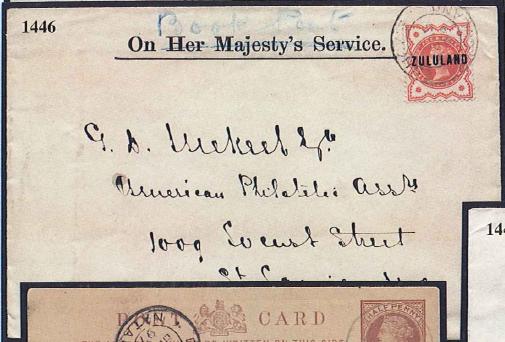 1446
Book Post
On Her Majesty's Service.
ZULULAND
G. D. Mekeel Esqre
American Philatelic Assn
1009 Locust Street
St
144
CARD
HALFPENNY
NATA